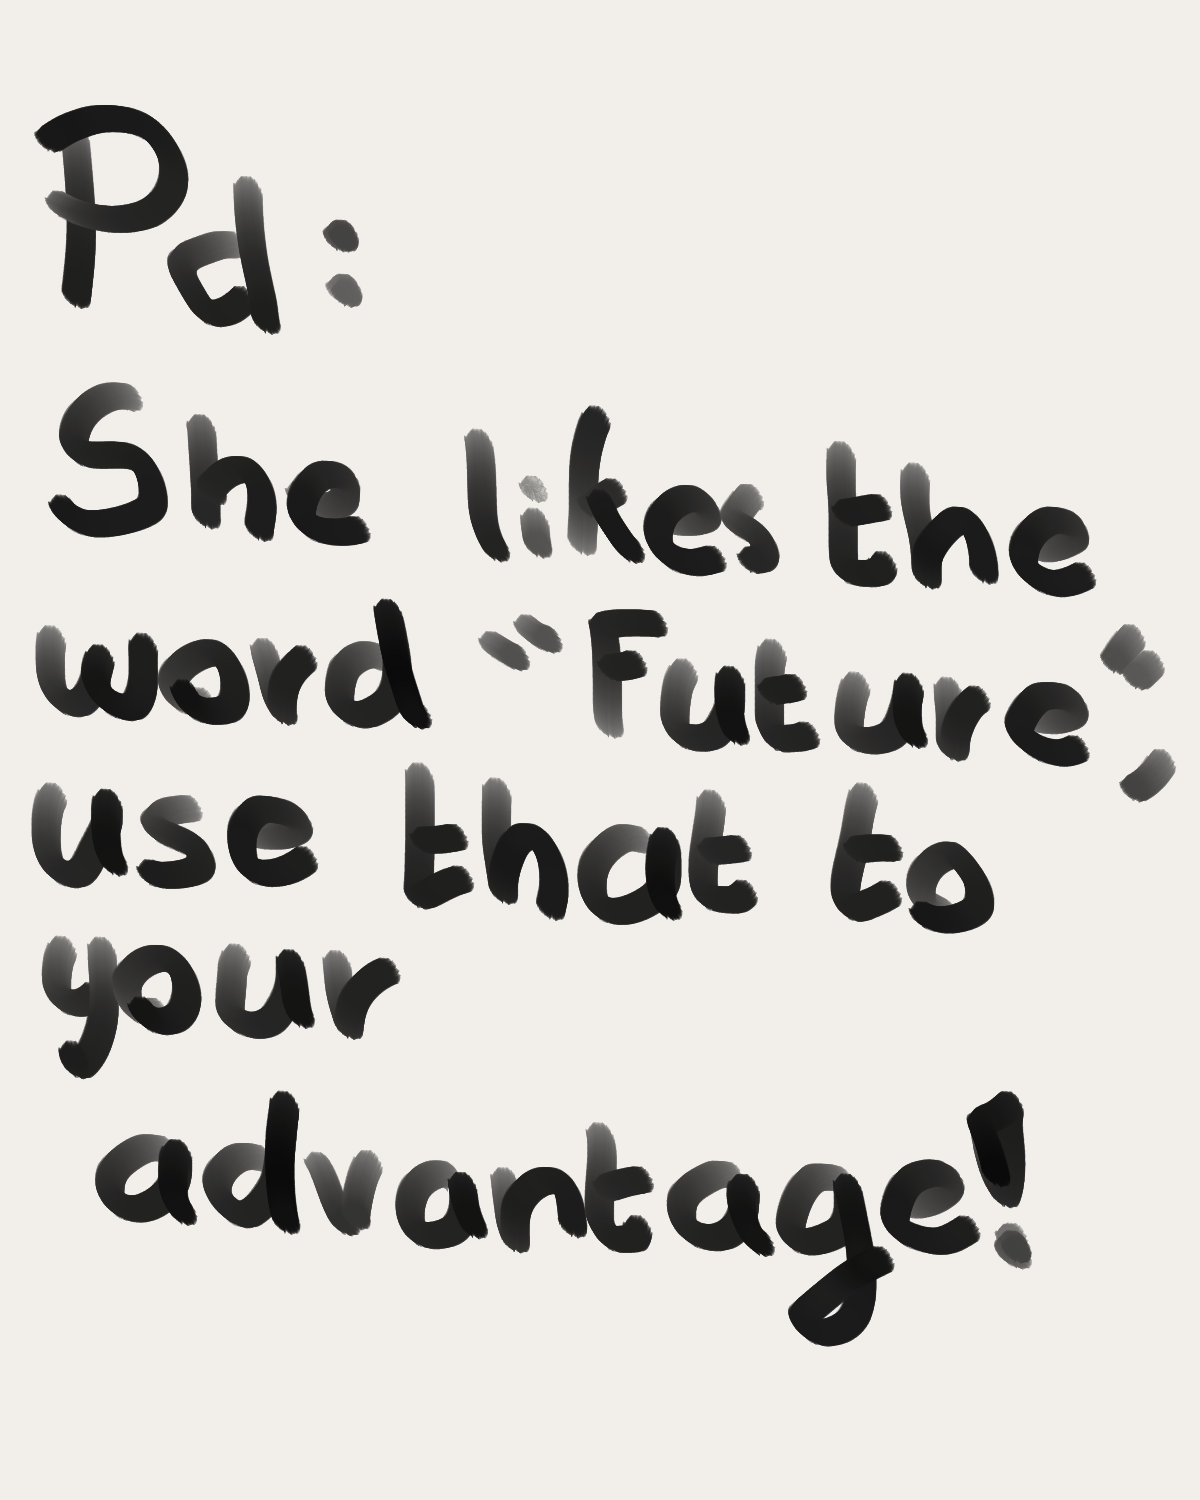 Pd:
She likes the
word "Future",
use that to
your
advantage!